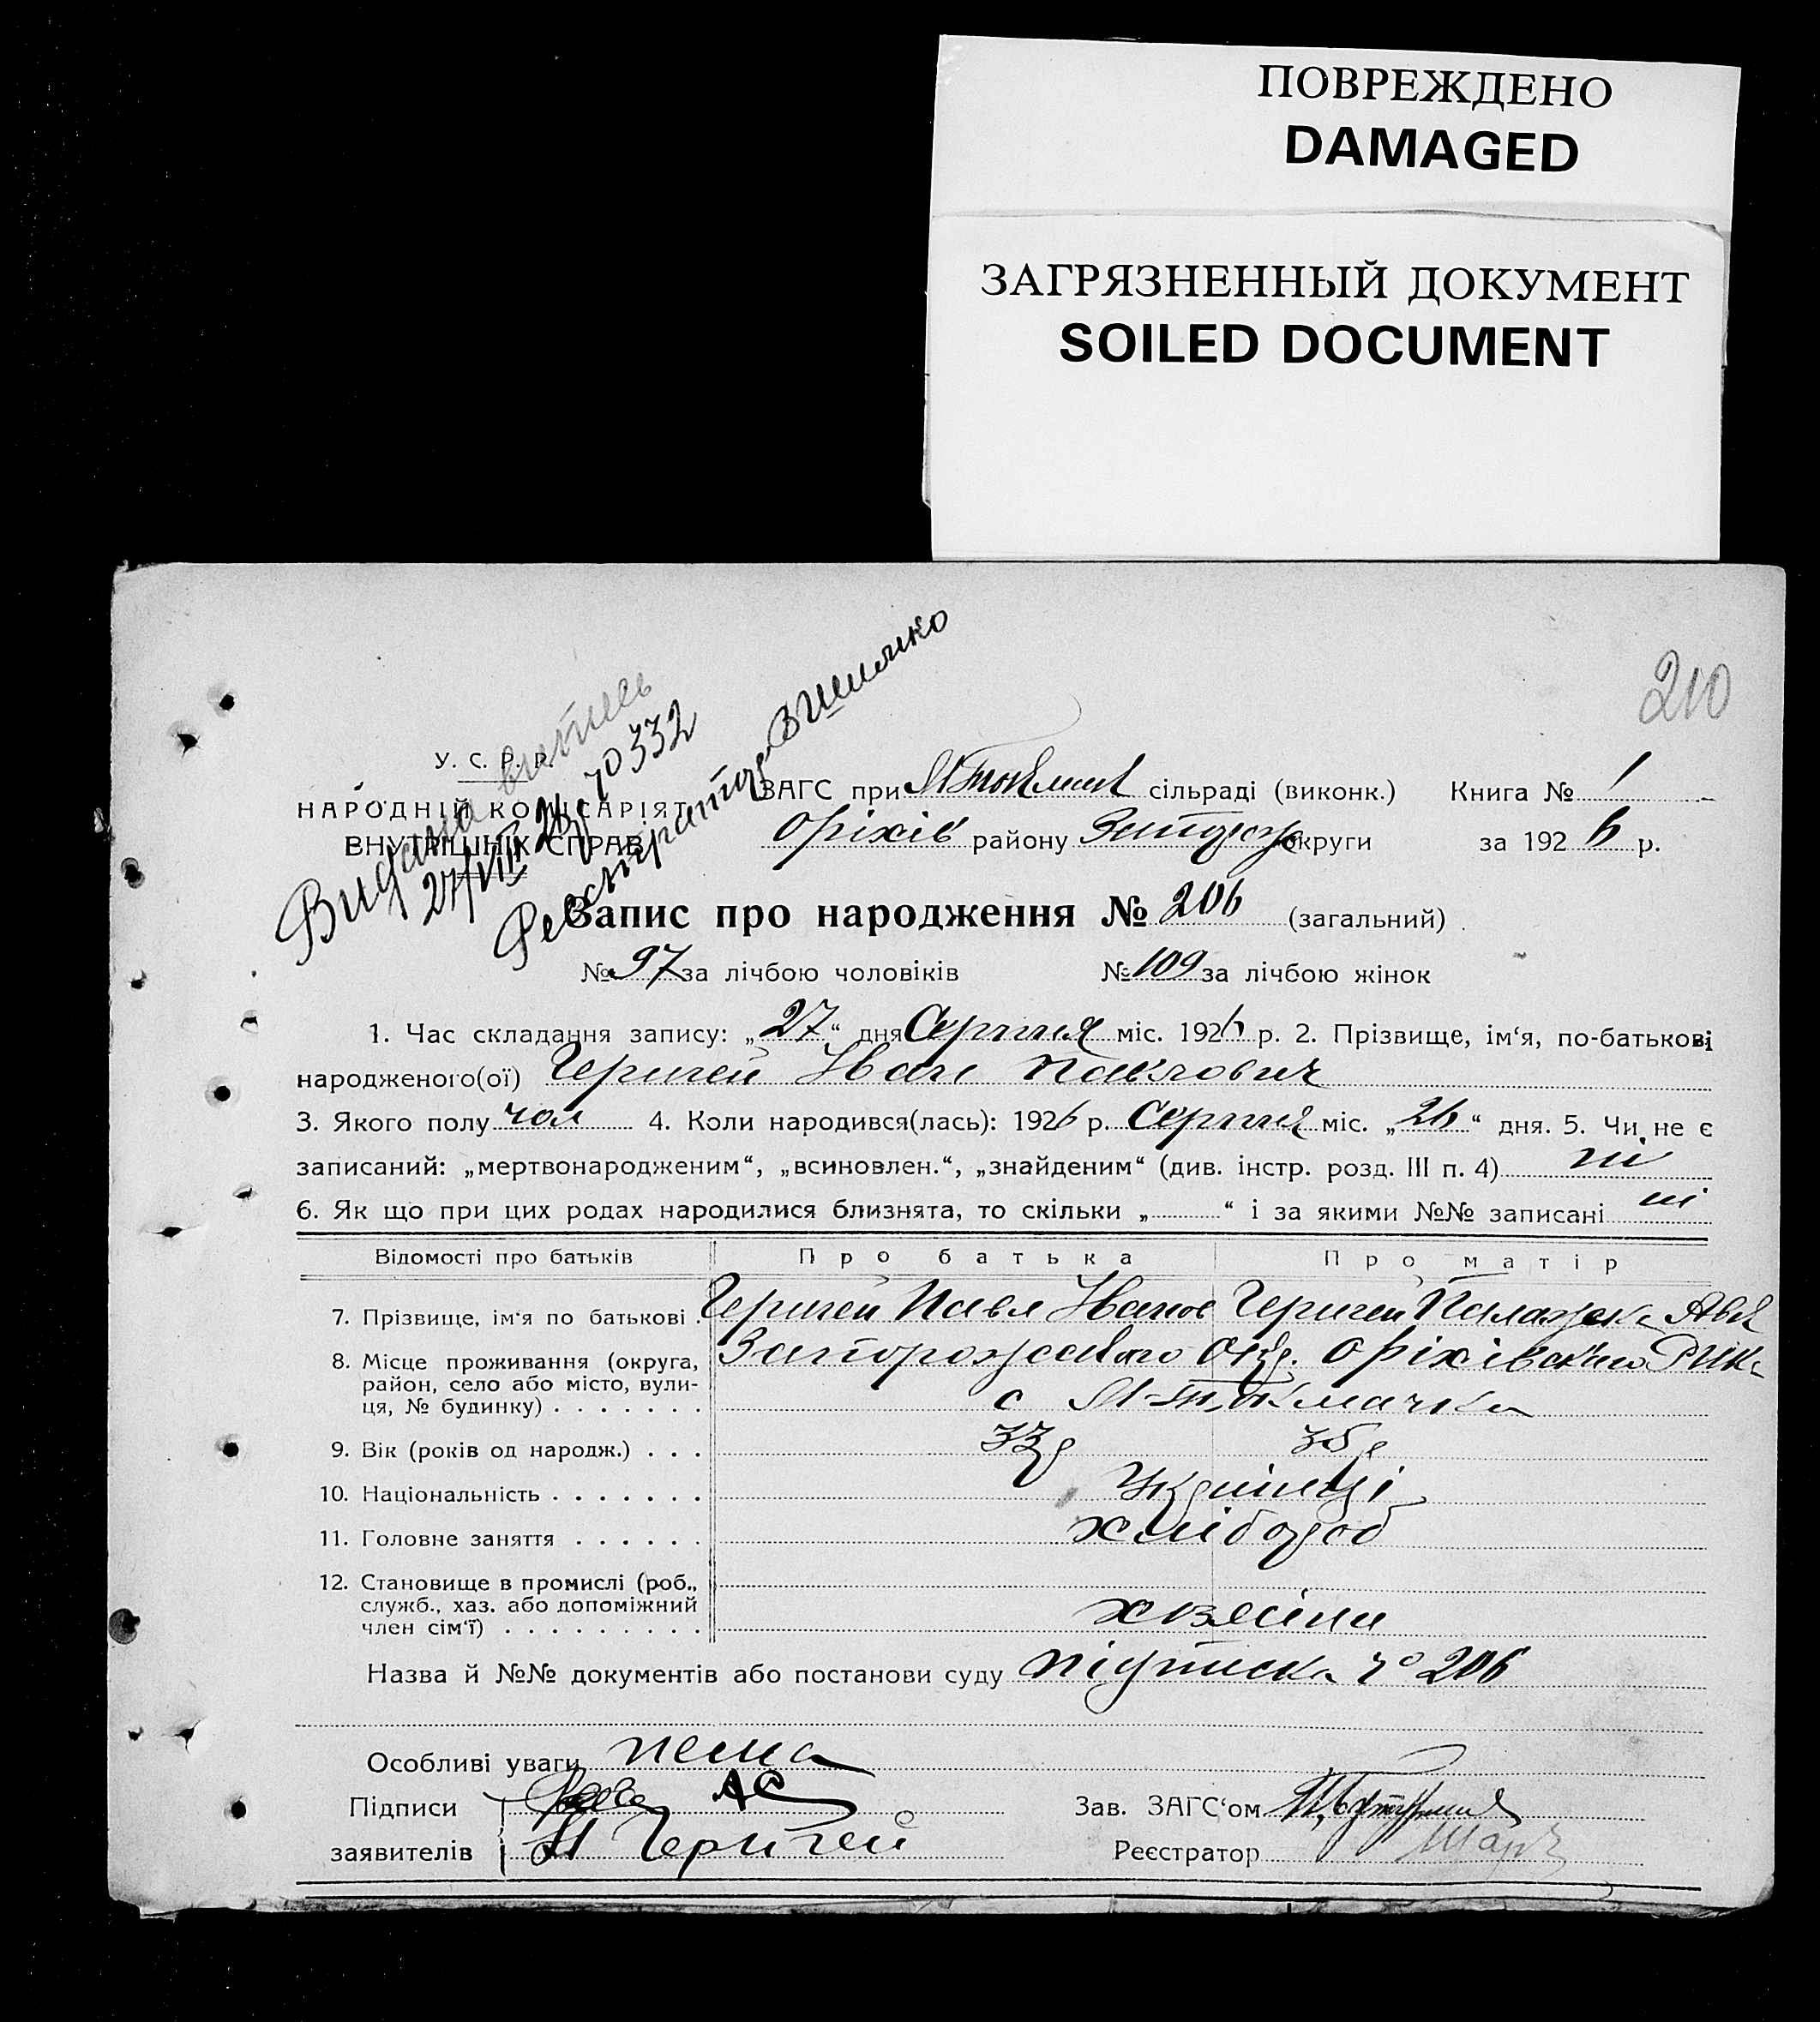 ПОВРЕЖДЕНО
DAMAGED
ЗАГРЯЗНЕННЫЙ ДОКУМЕНТ
SOILED DOCUMENT
210
Видана витпсь
27/VIII 26 70332
Реєстратор
У. С. Р. Р.
НАРОДНІЙ КОМІСАРІЯТ
ВНУТРІШНІХ СПРАВ
ЗАГС при М Токмач сільраді (виконк.) Книга № 1
Оріхів району Запорож округи за 1926 р.
Запис про народження № 206 (загальний)
№ 97 за лічбою чоловіків № 109 за лічбою жінок
1. Час складання запису: „27“ дня Серпня міс. 1926 р. 2. Прізвище, ім‘я, по-батькові
народженого(ої) Геричей Іван Павлович
3. Якого полу чол 4. Коли народився(лась): 1926 р. Серпня міс. „26“ дня. 5. Чи не є
записаний: „мертвонародженим“, „всиновлен.“, „знайденим“ (див. інстр. розд. III п. 4) ні
6. Як що при цих родах народилися близнята, то скільки „ “ і за якими №№ записані ні
Відомості про батьків Про батька Про матір
7. Прізвище, ім‘я по батькові . Геричей Павл Іванов Геричей Палажка
8. Місце проживання (округа, Запорожського Окр. Оріхівського РИКа
район, село або місто, вули-
ця, № будинку) . . . . . . . с М-Токмачка
9. Вік (років од народж.) . . . 33р 35р
10. Національність . . . . . . . Українці
11. Головне заняття . . . . . . хлібороб
12. Становище в промислі (роб.,
служб., хаз. або допоміжний
член сім‘ї) . . . . . . . . . хазяїни
Назва й №№ документів або постанови суду підписка № 206
Особливі уваги нема
Підписи АС Зав. ЗАГС‘ом
заявителів Геричей Реєстратор